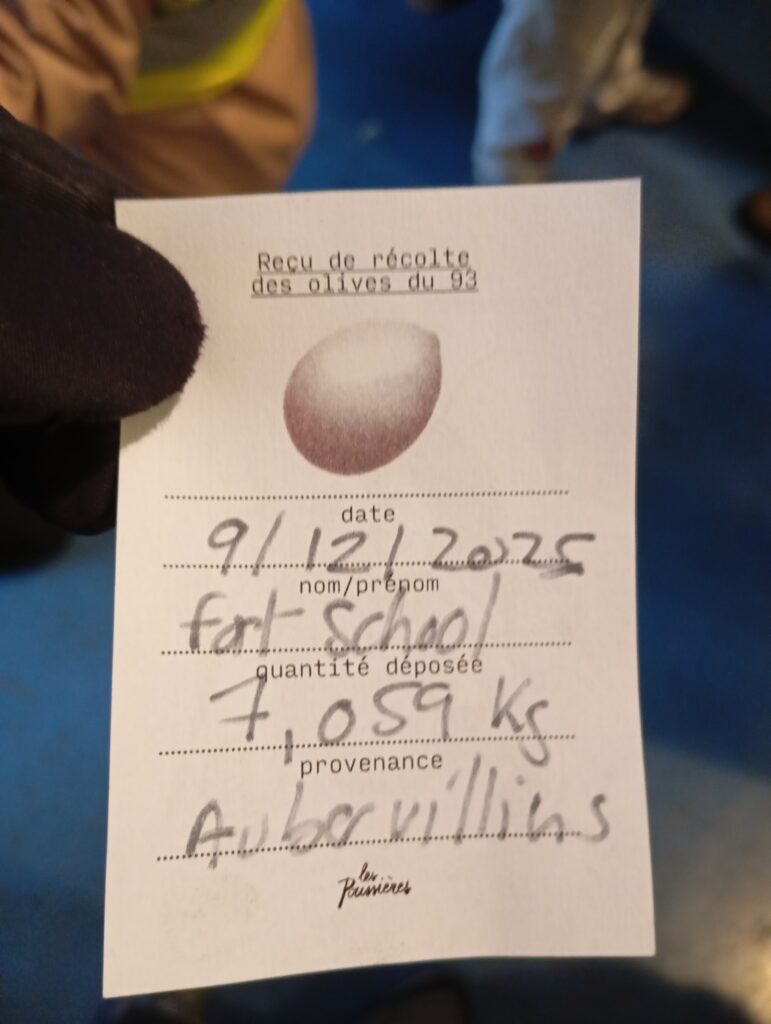 Reçu de récolte
des olives du 93
date
9/12/2025
nom/prénom
Fort School
quantité déposée
7,059 Kg
provenance
Aubervilliers
les
Poussières